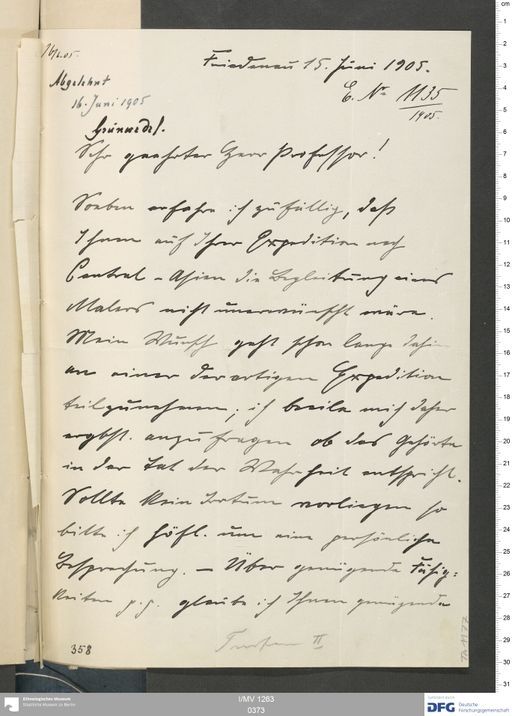 16/6.05.
Friedenau 15. Juni 1905.
Abgelehnt
16. Juni 1905
E. No 1135
1905.
Grünwedel.
Sehr geehrter Herr Professor!
Soeben erfahre ich zufällig, daß
Ihnen auf Ihrer Expedition nach
Central-Asien die Begleitung eines
Malers nicht unerwünscht wäre.
Mein Wunsch geht schon lange dahin
an einer derartigen Expedition
teilzunehmen; ich beeile mich daher
ergbst. anzufragen ob das Gehörte
in der Tat der Wahrheit entspricht.
Sollte kein Irrtum vorliegen so
bitte ich höfl. um eine persönliche
Besprechung. – Über genügende Fähig-
keiten p.p. glaube ich Ihnen genügende
358
Turfan II
I/MV 1263
0373
Ethnologisches Museum
Staatliche Museen zu Berlin
DFG
Deutsche
Forschungsgemeinschaft
cm
1
2
3
4
5
6
7
8
9
10
11
12
13
14
15
16
17
18
19
20
21
22
23
24
25
26
27
28
29
30
31